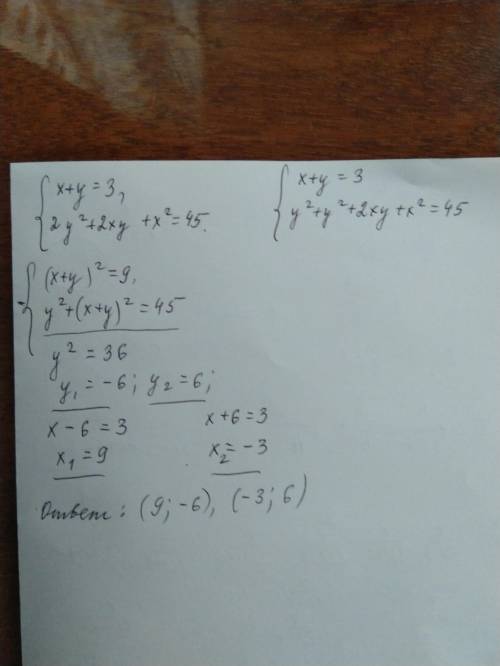 { x+y=3,
2y²+2xy +x²=45.
{ x+y=3
y²+y²+2xy+x²=45
{ (x+y)²=9,
y²+(x+y)²=45
y²=36
y₁=-6; y₂=6;
x-6=3 x+6=3
x₁=9 x₂=-3
Ответ: (9;-6), (-3;6)